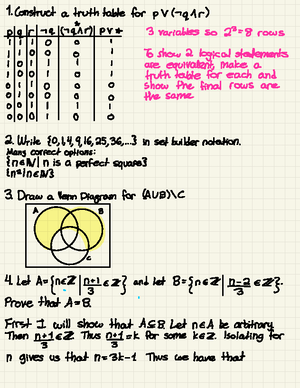 1. Construct a truth table for p∨(¬q∧r)
*
p q r ¬q (¬q∧r) p∨*
3 variables so 2³=8 rows
To show 2 logical statements
are equivalent, make a
truth table for each and
show the final rows are
the same
2. Write {0,1,4,9,16,25,36,...} in set builder notation.
Many correct options:
{n∈ℕ | n is a perfect square}
{n²|n∈ℕ}
3. Draw a Venn Diagram for (A∪B)\C
A B
C
4. Let A={n∈ℤ | (n+1)/3 ∈ℤ} and let B={n∈ℤ | (n-2)/3 ∈ℤ}.
Prove that A=B.
First I will show that A⊆B. Let n∈A be arbitrary.
Then (n+1)/3 ∈ℤ. Thus (n+1)/3 = k for some k∈ℤ. Isolating for
n gives us that n=3k-1. Thus we have that